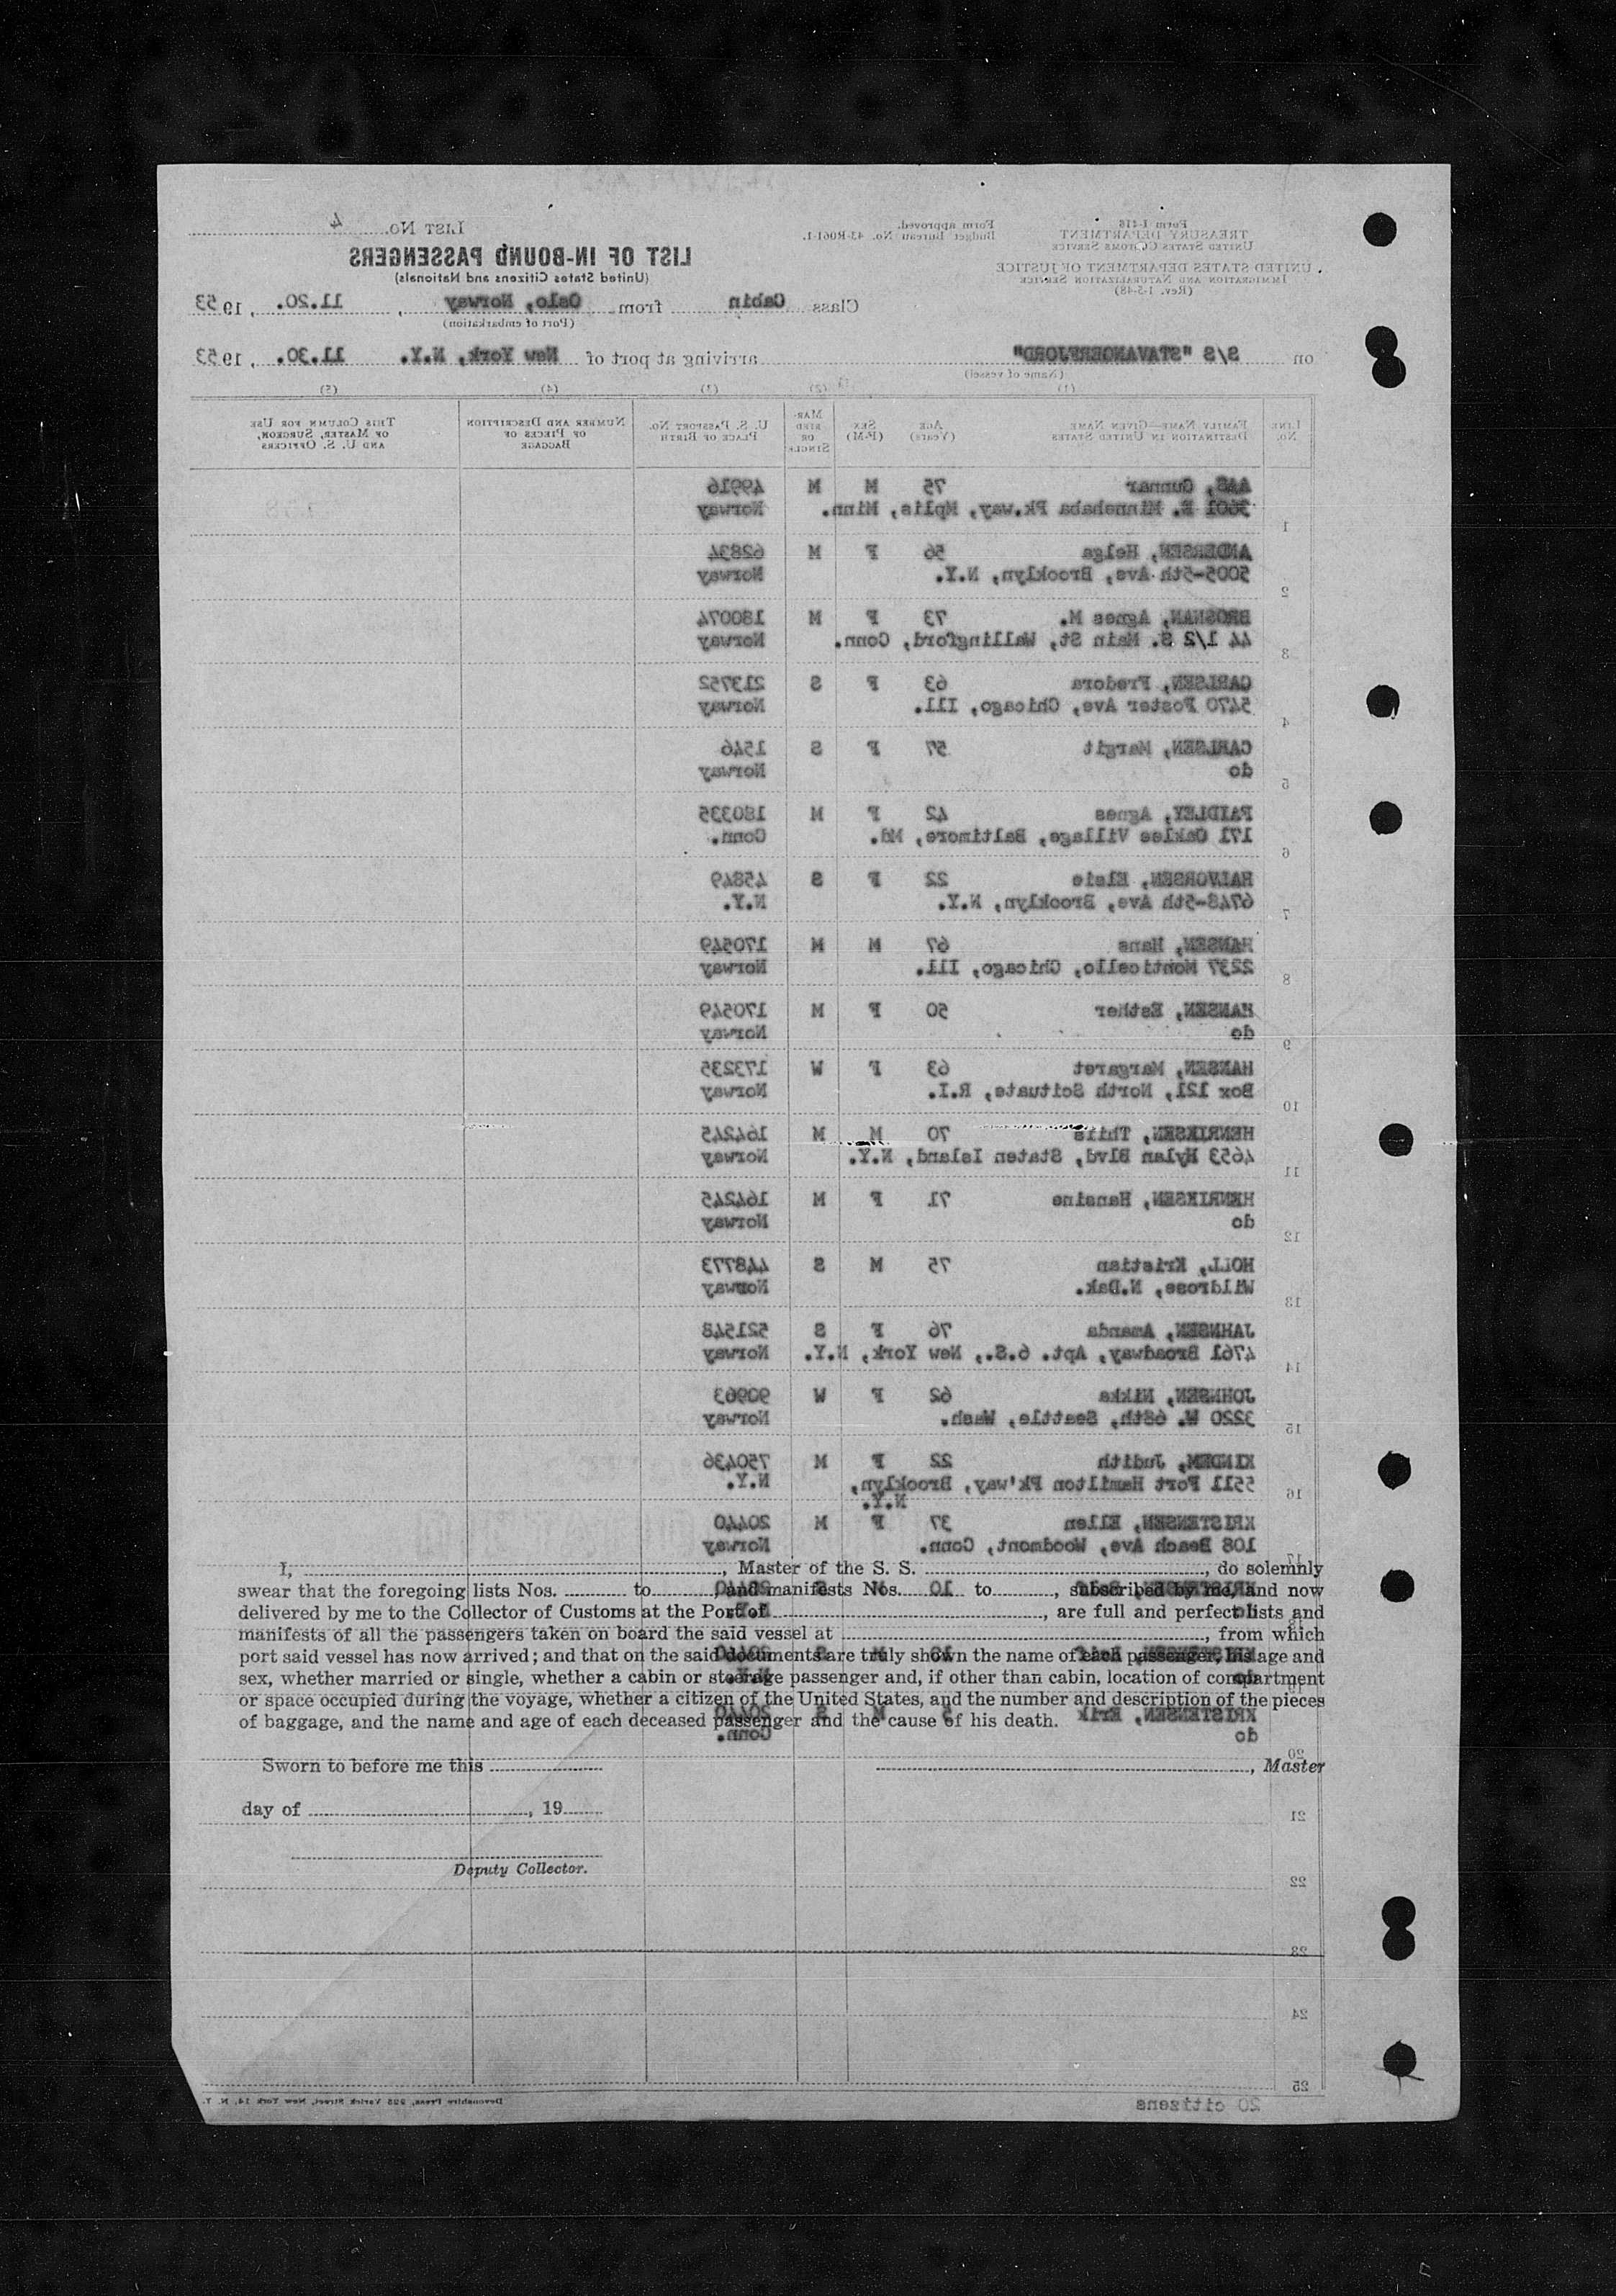 Form I-416
TREASURY DEPARTMENT
UNITED STATES CUSTOMS SERVICE
UNITED STATES DEPARTMENT OF JUSTICE
IMMIGRATION AND NATURALIZATION SERVICE
(Rev. 1-5-48)
Form approved.
Budget Bureau No. 43-R061-1.
LIST NO. 4
LIST OF IN-BOUND PASSENGERS
(United States Citizens and Nationals)
Class Cabin from Oslo, Norway, 11.20., 1953
(Port of embarkation)
on S/S "STAVANGERFJORD" arriving at port of New York, N.Y. 11.30., 1953
(Name of vessel)
(1) (2) (3) (4) (5)
LINE No. FAMILY NAME—GIVEN NAME DESTINATION IN UNITED STATES AGE (Years) SEX (F-M) MARRIED OR SINGLE U. S. PASSPORT NO. PLACE OF BIRTH NUMBER AND DESCRIPTION OF PIECES OF BAGGAGE THIS COLUMN FOR USE OF MASTER, SURGEON, AND U. S. OFFICERS
1 AAS, Gunnar 75 M M 49916
3601 E. Minnehaha Pk.way, Mplis, Minn. Norway
2 ANDERSEN, Helga 56 F M 62834
5005-5th Ave, Brooklyn, N.Y. Norway
3 BROSNAN, Agnes M. 73 F M 180074
44 1/2 S. Main St, Wallingford, Conn. Norway
4 CARLSEN, Fredora 63 F S 213752
5470 Foster Ave, Chicago, Ill. Norway
5 CARLSEN, Margit 57 F S 1546
do Norway
6 FAIDLEY, Agnes 42 F M 180335
171 Oaklee Village, Baltimore, Md. Conn.
7 HALVORSEN, Elsie 22 F S 45849
6748-5th Ave, Brooklyn, N.Y. N.Y.
8 HANSEN, Hans 67 M M 170549
2237 Monticello, Chicago, Ill. Norway
9 HANSEN, Esther 50 F M 170549
do Norway
10 HANSEN, Margaret 63 F W 173235
Box 121, North Scituate, R.I. Norway
11 HENRIKSEN, Thiis 70 M M 164245
4653 Hylan Blvd, Staten Island, N.Y. Norway
12 HENRIKSEN, Hansine 71 F M 164245
do Norway
13 HOLL, Kristian 75 M S 448773
Wildrose, N.Dak. Norway
14 JAHNSEN, Amanda 76 F S 521548
4761 Broadway, Apt. 6.S., New York, N.Y. Norway
15 JOHNSEN, Nikka 62 F W 90963
3220 W. 68th, Seattle, Wash. Norway
16 KINDEM, Judith 22 F M 750436
5511 Fort Hamilton Pk'way, Brooklyn, N.Y. N.Y.
17 KRISTENSEN, Ellen 37 F M 20440
108 Beach Ave, Woodmont, Conn. Norway
I, , Master of the S. S. , do solemnly
swear that the foregoing lists Nos. to , and manifests Nos. to , subscribed by me, and now
delivered by me to the Collector of Customs at the Port of , are full and perfect lists and
manifests of all the passengers taken on board the said vessel at , from which
port said vessel has now arrived; and that on the said documents are truly shown the name of each passenger, his age and
sex, whether married or single, whether a cabin or steerage passenger and, if other than cabin, location of compartment
or space occupied during the voyage, whether a citizen of the United States, and the number and description of the pieces
of baggage, and the name and age of each deceased passenger and the cause of his death.
KRISTENSEN, 10 20440
KRISTENSEN, Leif 10 M S 20440
do N.Y.
KRISTENSEN, Erik 5 M S 20440
20 do Conn.
Sworn to before me this , Master
day of , 19
21
Deputy Collector.
22
23
24
25
20 citizens
Devonshire Press, 225 Varick Street, New York 14, N. Y.